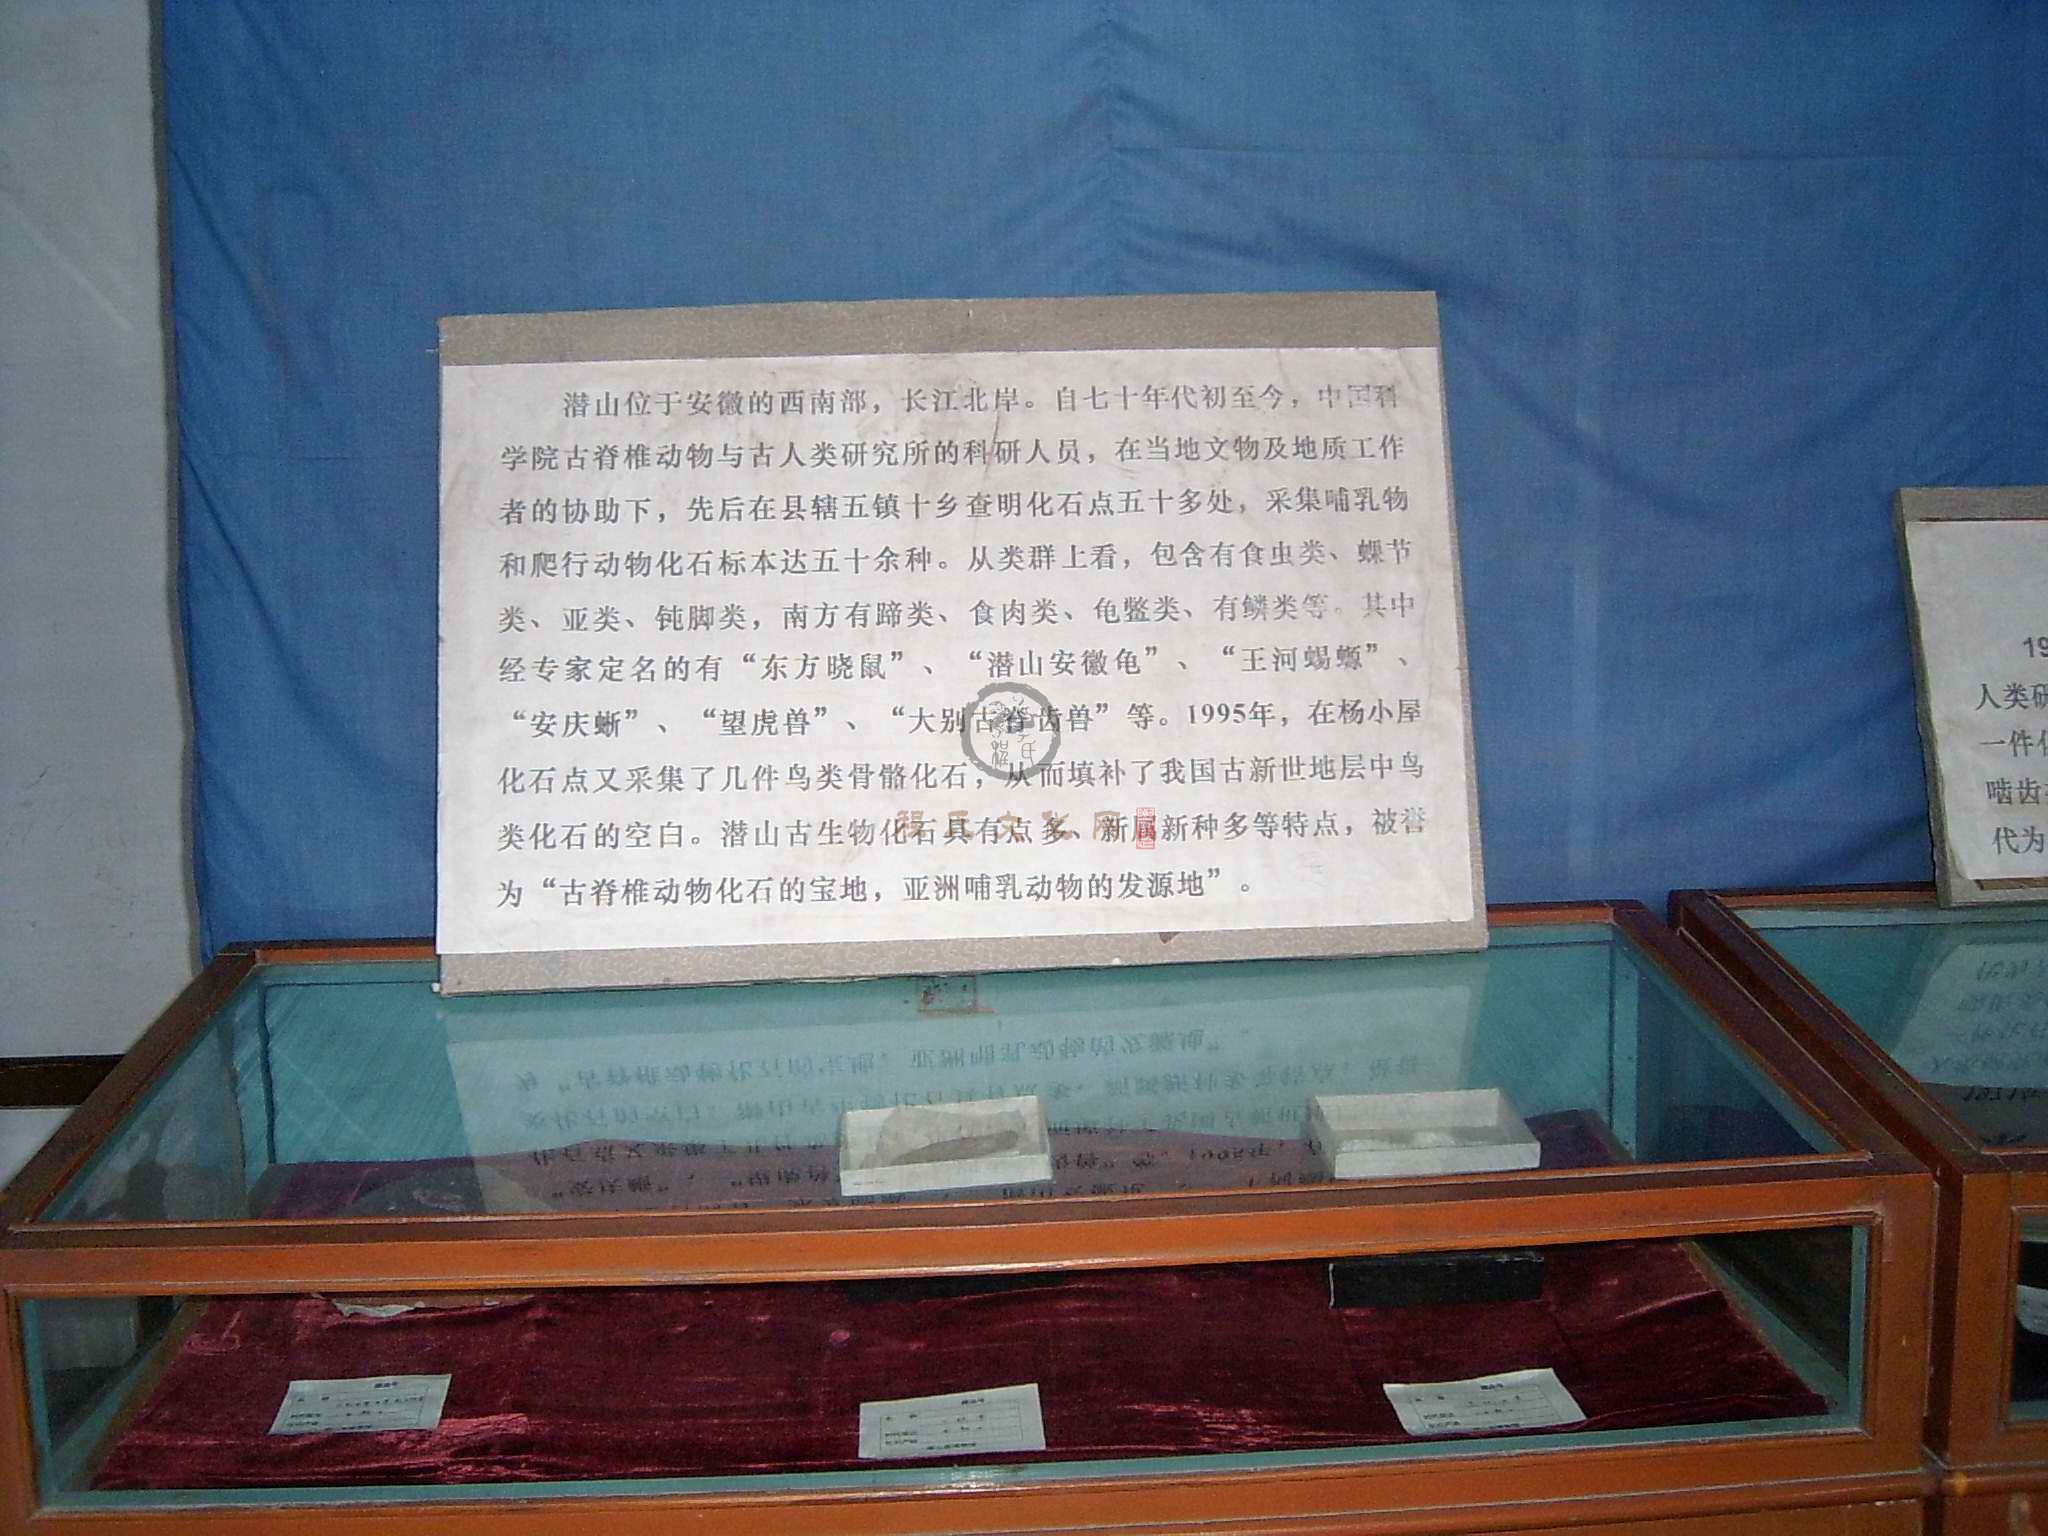 潜山位于安徽的西南部，长江北岸。自七十年代初至今，中国科
学院古脊椎动物与古人类研究所的科研人员，在当地文物及地质工作
者的协助下，先后在县辖五镇十乡查明化石点五十多处，采集哺乳物
和爬行动物化石标本达五十余种。从类群上看，包含有食虫类、蜾节
类、亚类、钝脚类，南方有蹄类、食肉类、龟鳖类、有鳞类等。其中
经专家定名的有“东方晓鼠”、“潜山安徽龟”、“王河蜴螈”、
“安庆蜥”、“望虎兽”、“大别古脊齿兽”等。1995年，在杨小屋
化石点又采集了几件鸟类骨骼化石，从而填补了我国古新世地层中鸟
类化石的空白。潜山古生物化石具有点多、新属新种多等特点，被誉
为“古脊椎动物化石的宝地，亚洲哺乳动物的发源地”。
程氏文化网
19
人类研
一件化
啮齿
代为